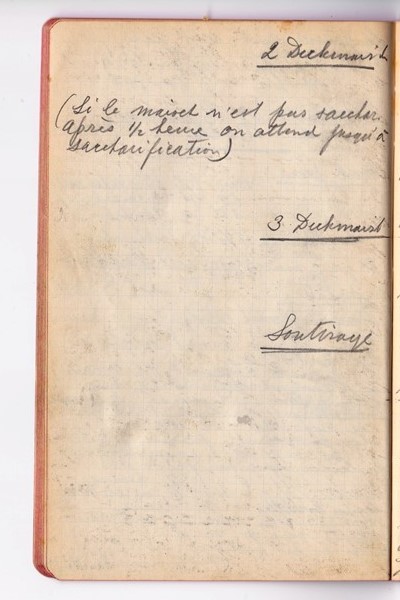 2 Dickmaisch
(Si le maisch n'est pas sacchar.
après 1/2 heure on attend jusqu'à
saccharification)
3 Dickmaisch
Soutirage